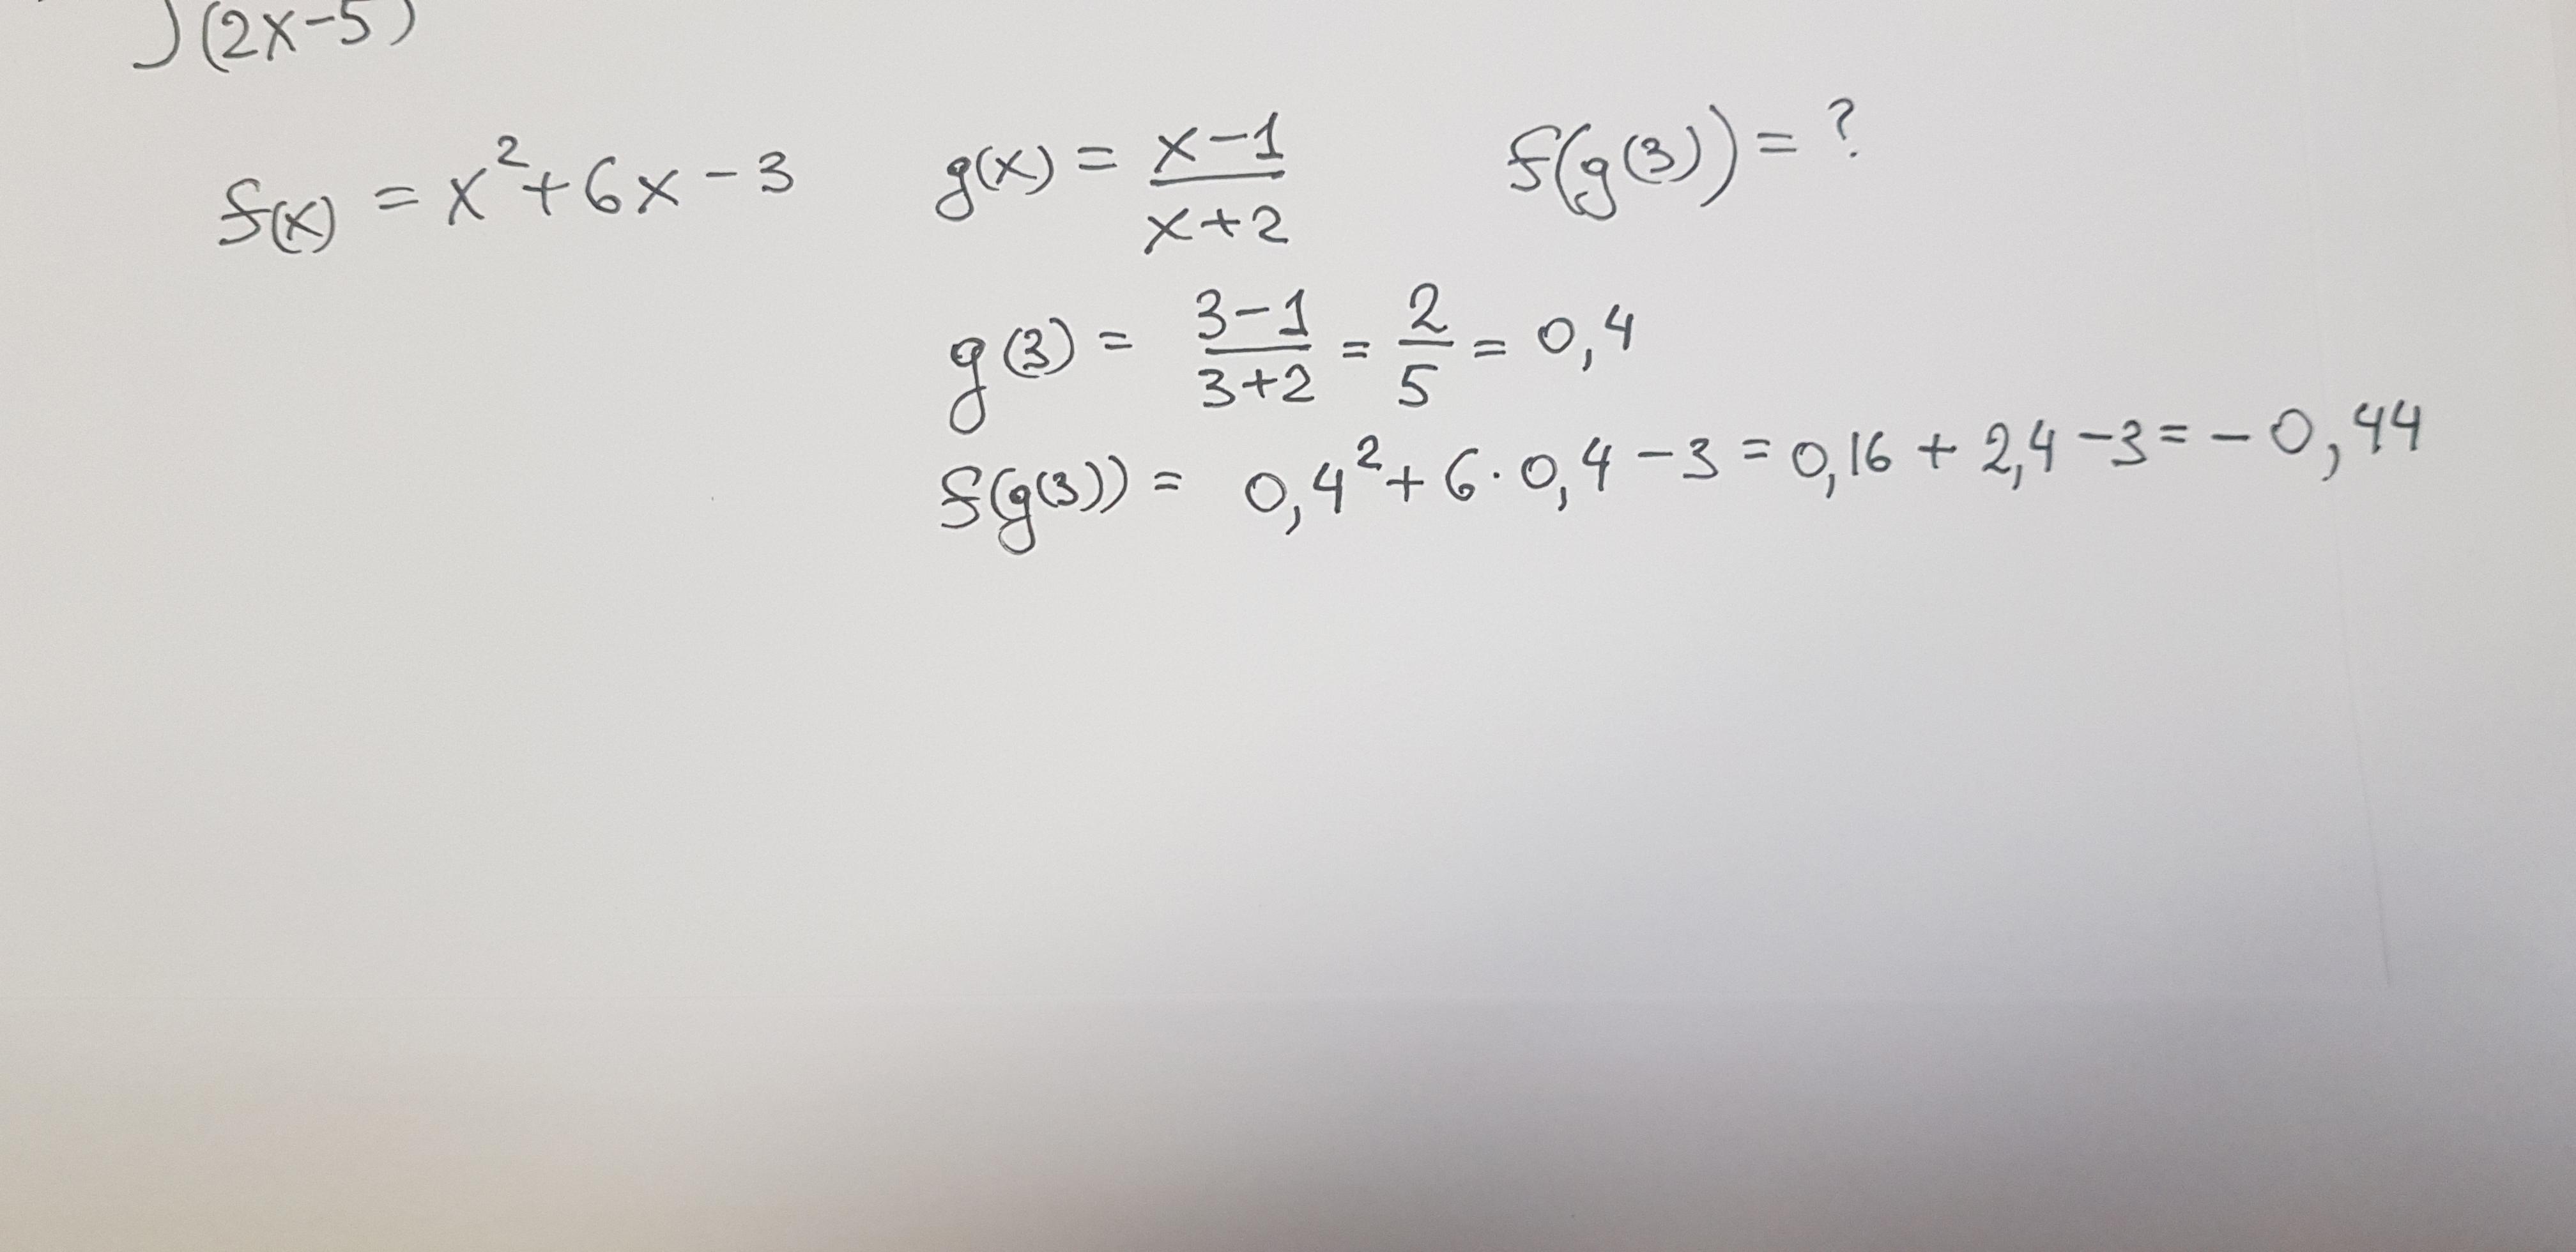 (2x-5)
f(x) = x²+6x-3 g(x) = x-1/x+2 f(g(3)) = ?
g(3) = 3-1/3+2 = 2/5 = 0,4
f(g(3)) = 0,4²+6·0,4-3 = 0,16+2,4-3 = -0,44